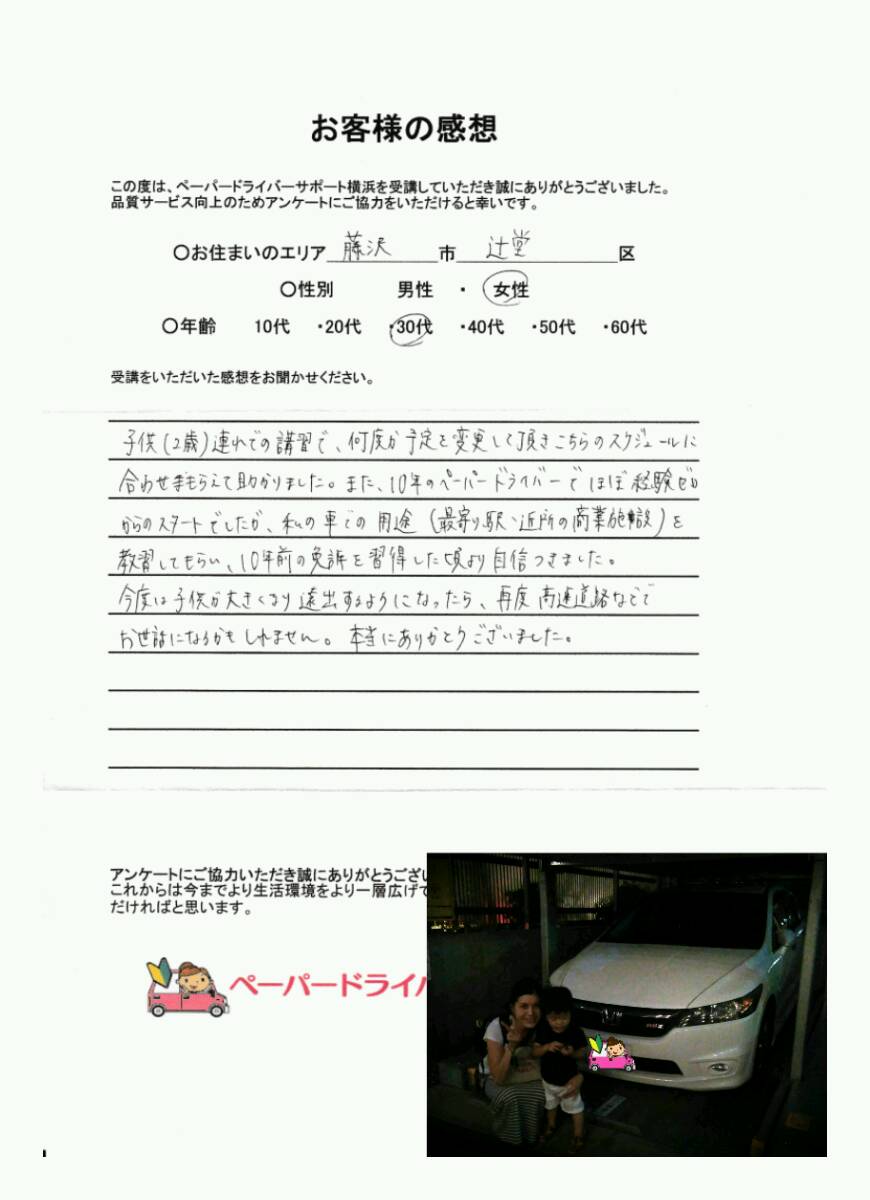 お客様の感想
この度は、ペーパードライバーサポート横浜を受講していただき誠にありがとうございました。
品質サービス向上のためアンケートにご協力をいただけると幸いです。
○お住まいのエリア 藤沢 市 辻堂 区
○性別 男性 ・ 女性
○年齢 10代 ・20代 ・30代 ・40代 ・50代 ・60代
受講をいただいた感想をお聞かせください。
子供(2歳)連れでの講習で、何度か予定を変更して頂きこちらのスケジュールに
合わせてもらえて助かりました。また、10年のペーパードライバーでほぼ経験ゼロ
からのスタートでしたが、私の車での用途(最寄り駅・近所の商業施設)を
教習してもらい、10年前の免許を習得した頃より自信つきました。
今度は子供が大きくなり遠出するようになったら、再度高速道路などで
お世話になるかもしれません。本当にありがとうございました。
アンケートにご協力いただき誠にありがとうござい
これからは今までより生活環境をより一層広げて
だければと思います。
ペーパードライバ